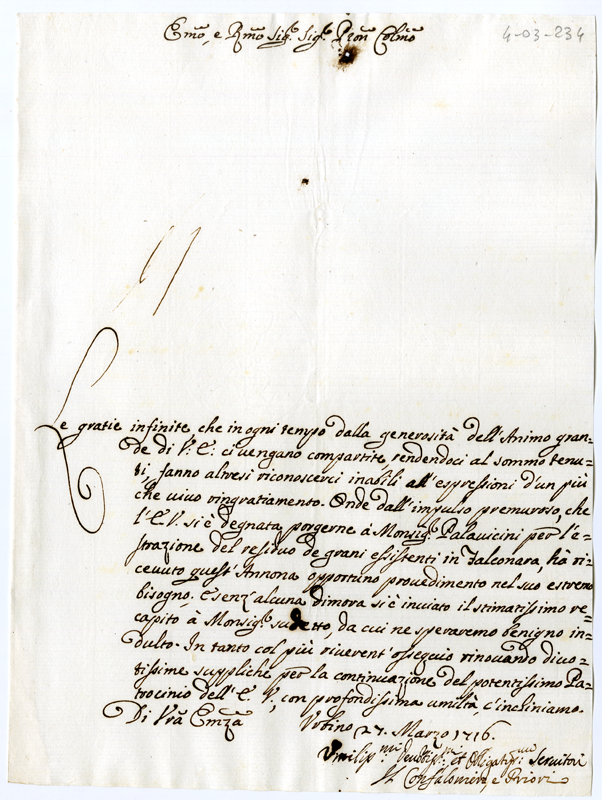 Emo, e Rmo Sig.r Sig.r Pron Colmo
4-03-234
Le gratie infinite che in ogni tempo dalla generosità dell'Animo gran=
de di V. E. ci vengano compartite, rendendoci al sommo tenu=
ti, fanno altresì riconoscerci inabili all'espressioni d'un più
che vivo ringratiamento. Onde dall'impulso premuroso, che
l'E. V. si è degnata porgerne à Monsig.r Palavicini per l'e=
strazione del residuo de grani essistenti in Falconara, hà ri=
cevuto quest'Annona opportuno provedimento nel suo estremo
bisogno, e senz'alcuna dimora si è inviato il stimatissimo re=
capito à Monsig.r sudetto, da cui ne speraremo benigno in=
dulto. In tanto col più riverent'ossequio rinovando divo=
tissime suppliche per la continuazione del potentissimo Pa=
trocinio dell'E. V., con profondissima umiltà, c'inchiniamo.
Di Vra Emza Urbino 27. Marzo 1716.
Umilis.mi Devotis.mi et Obligatis.mi Servitori
Il Confaloniere, e Priori